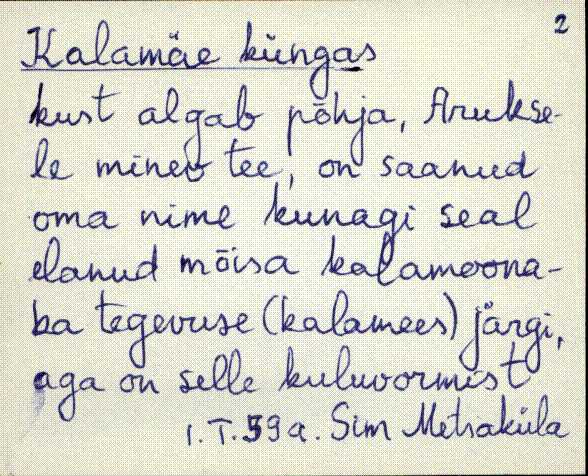 2
Kalamäe küngas
kust algab põhja, Arukse-
le minev tee, on saanud
oma nime kunagi seal
elanud mõisa kalamoona-
ka tegevuse (kalamees) järgi,
aga on selle kuluvormist
1. T. 59 a. Sim Metsaküla